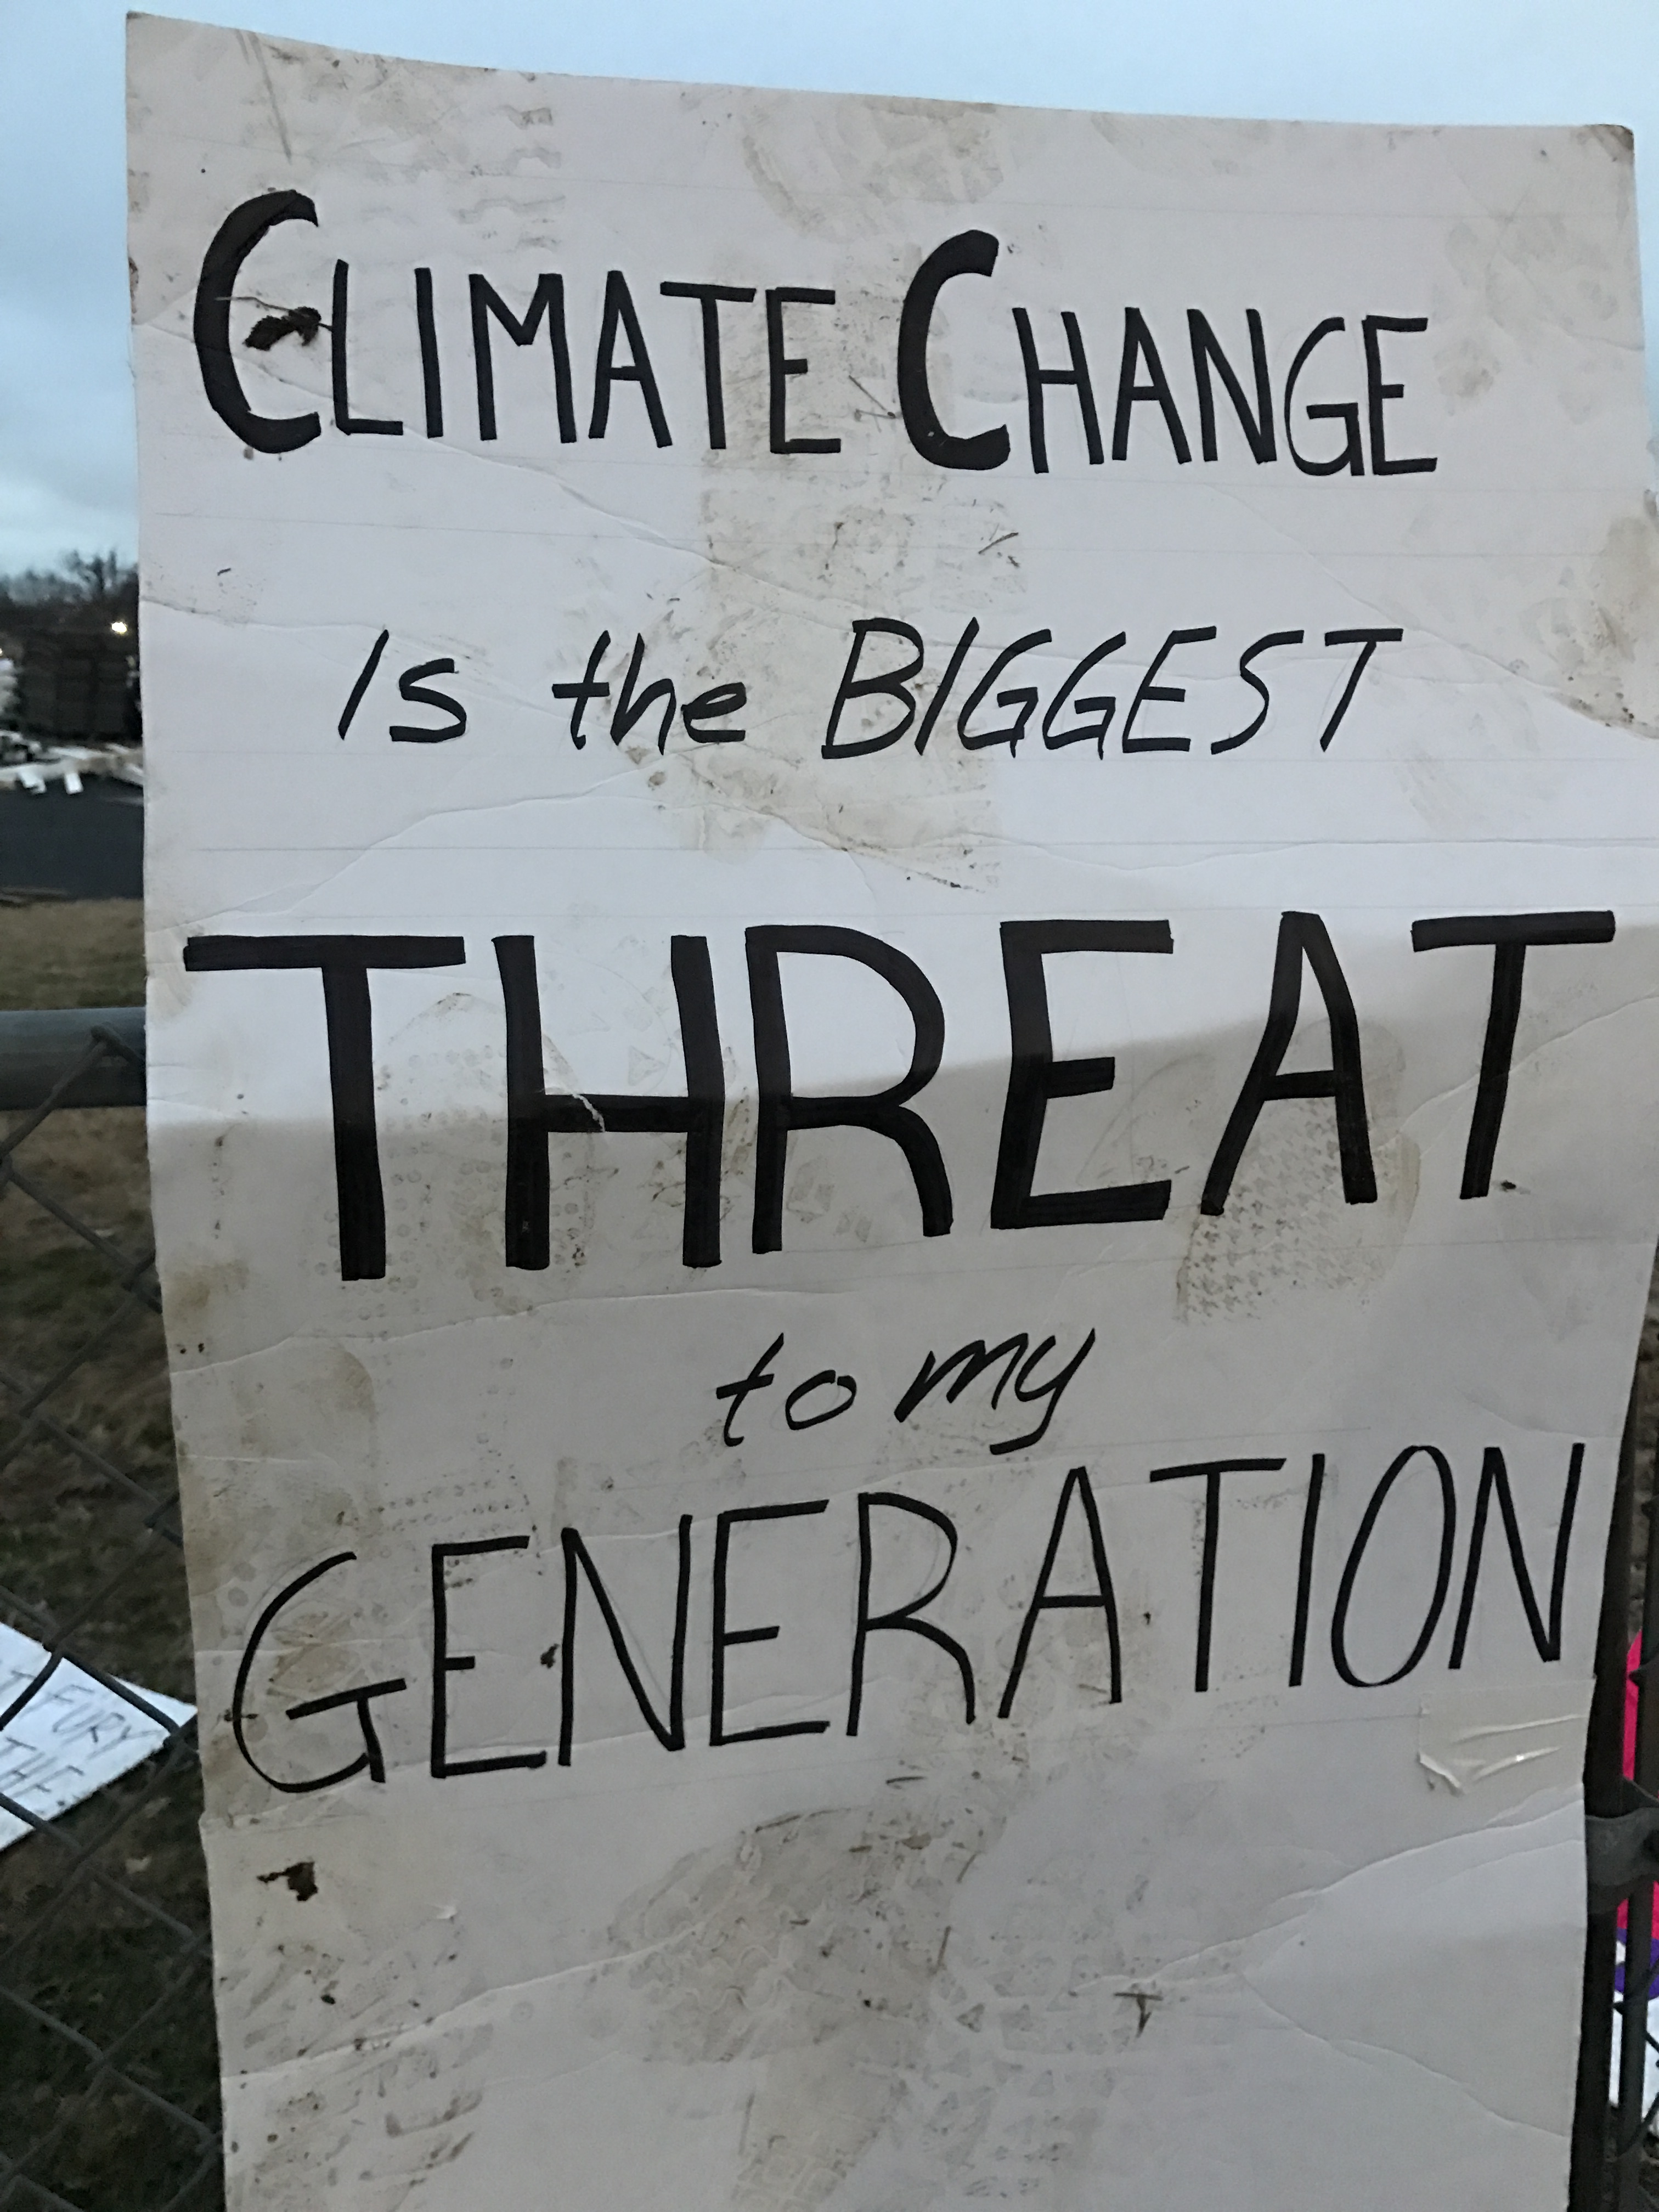 CLIMATE CHANGE
Is the BIGGEST
THREAT
to my
GENERATION
FURY
THE